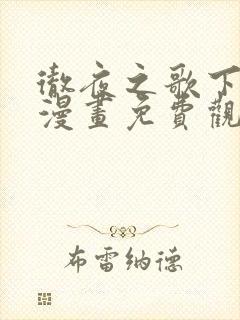 徹夜之歌下
漫畫免費觀
布雷納德